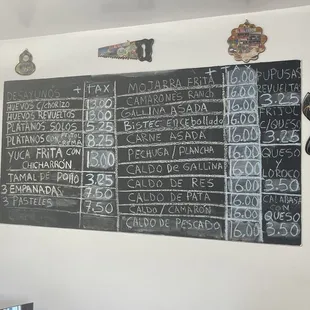 DESAYUNOS + TAX
HUEVOS C/CHORIZO 13.00
HUEVOS REVUELTOS 13.00
PLATANOS SOLOS 5.25
PLATANOS CON 8.25
YUCA FRITA CON CHICHARRÓN 13.00
TAMAL DE POLLO 3.25
3 EMPANADAS 7.50
3 PASTELES 7.50
MOJARRA FRITA 16.00
CAMARONES RANCH 16.00
GALLINA ASADA 16.00
BISTEC ENCEBOLLADO 16.00
CARNE ASADA 16.00
PECHUGA/PLANCHA 16.00
CALDO DE GALLINA 16.00
CALDO DE RES 16.00
CALDO DE PATA 16.00
CALDO/CAMARÓN 16.00
CALDO DE PESCADO 16.00
PUPUSAS
REVUELTA
3.25
FRIJOL
C/QUESO
3.25
QUESO
LOROCO
3.50
CALABASA
CON
QUESO
3.50